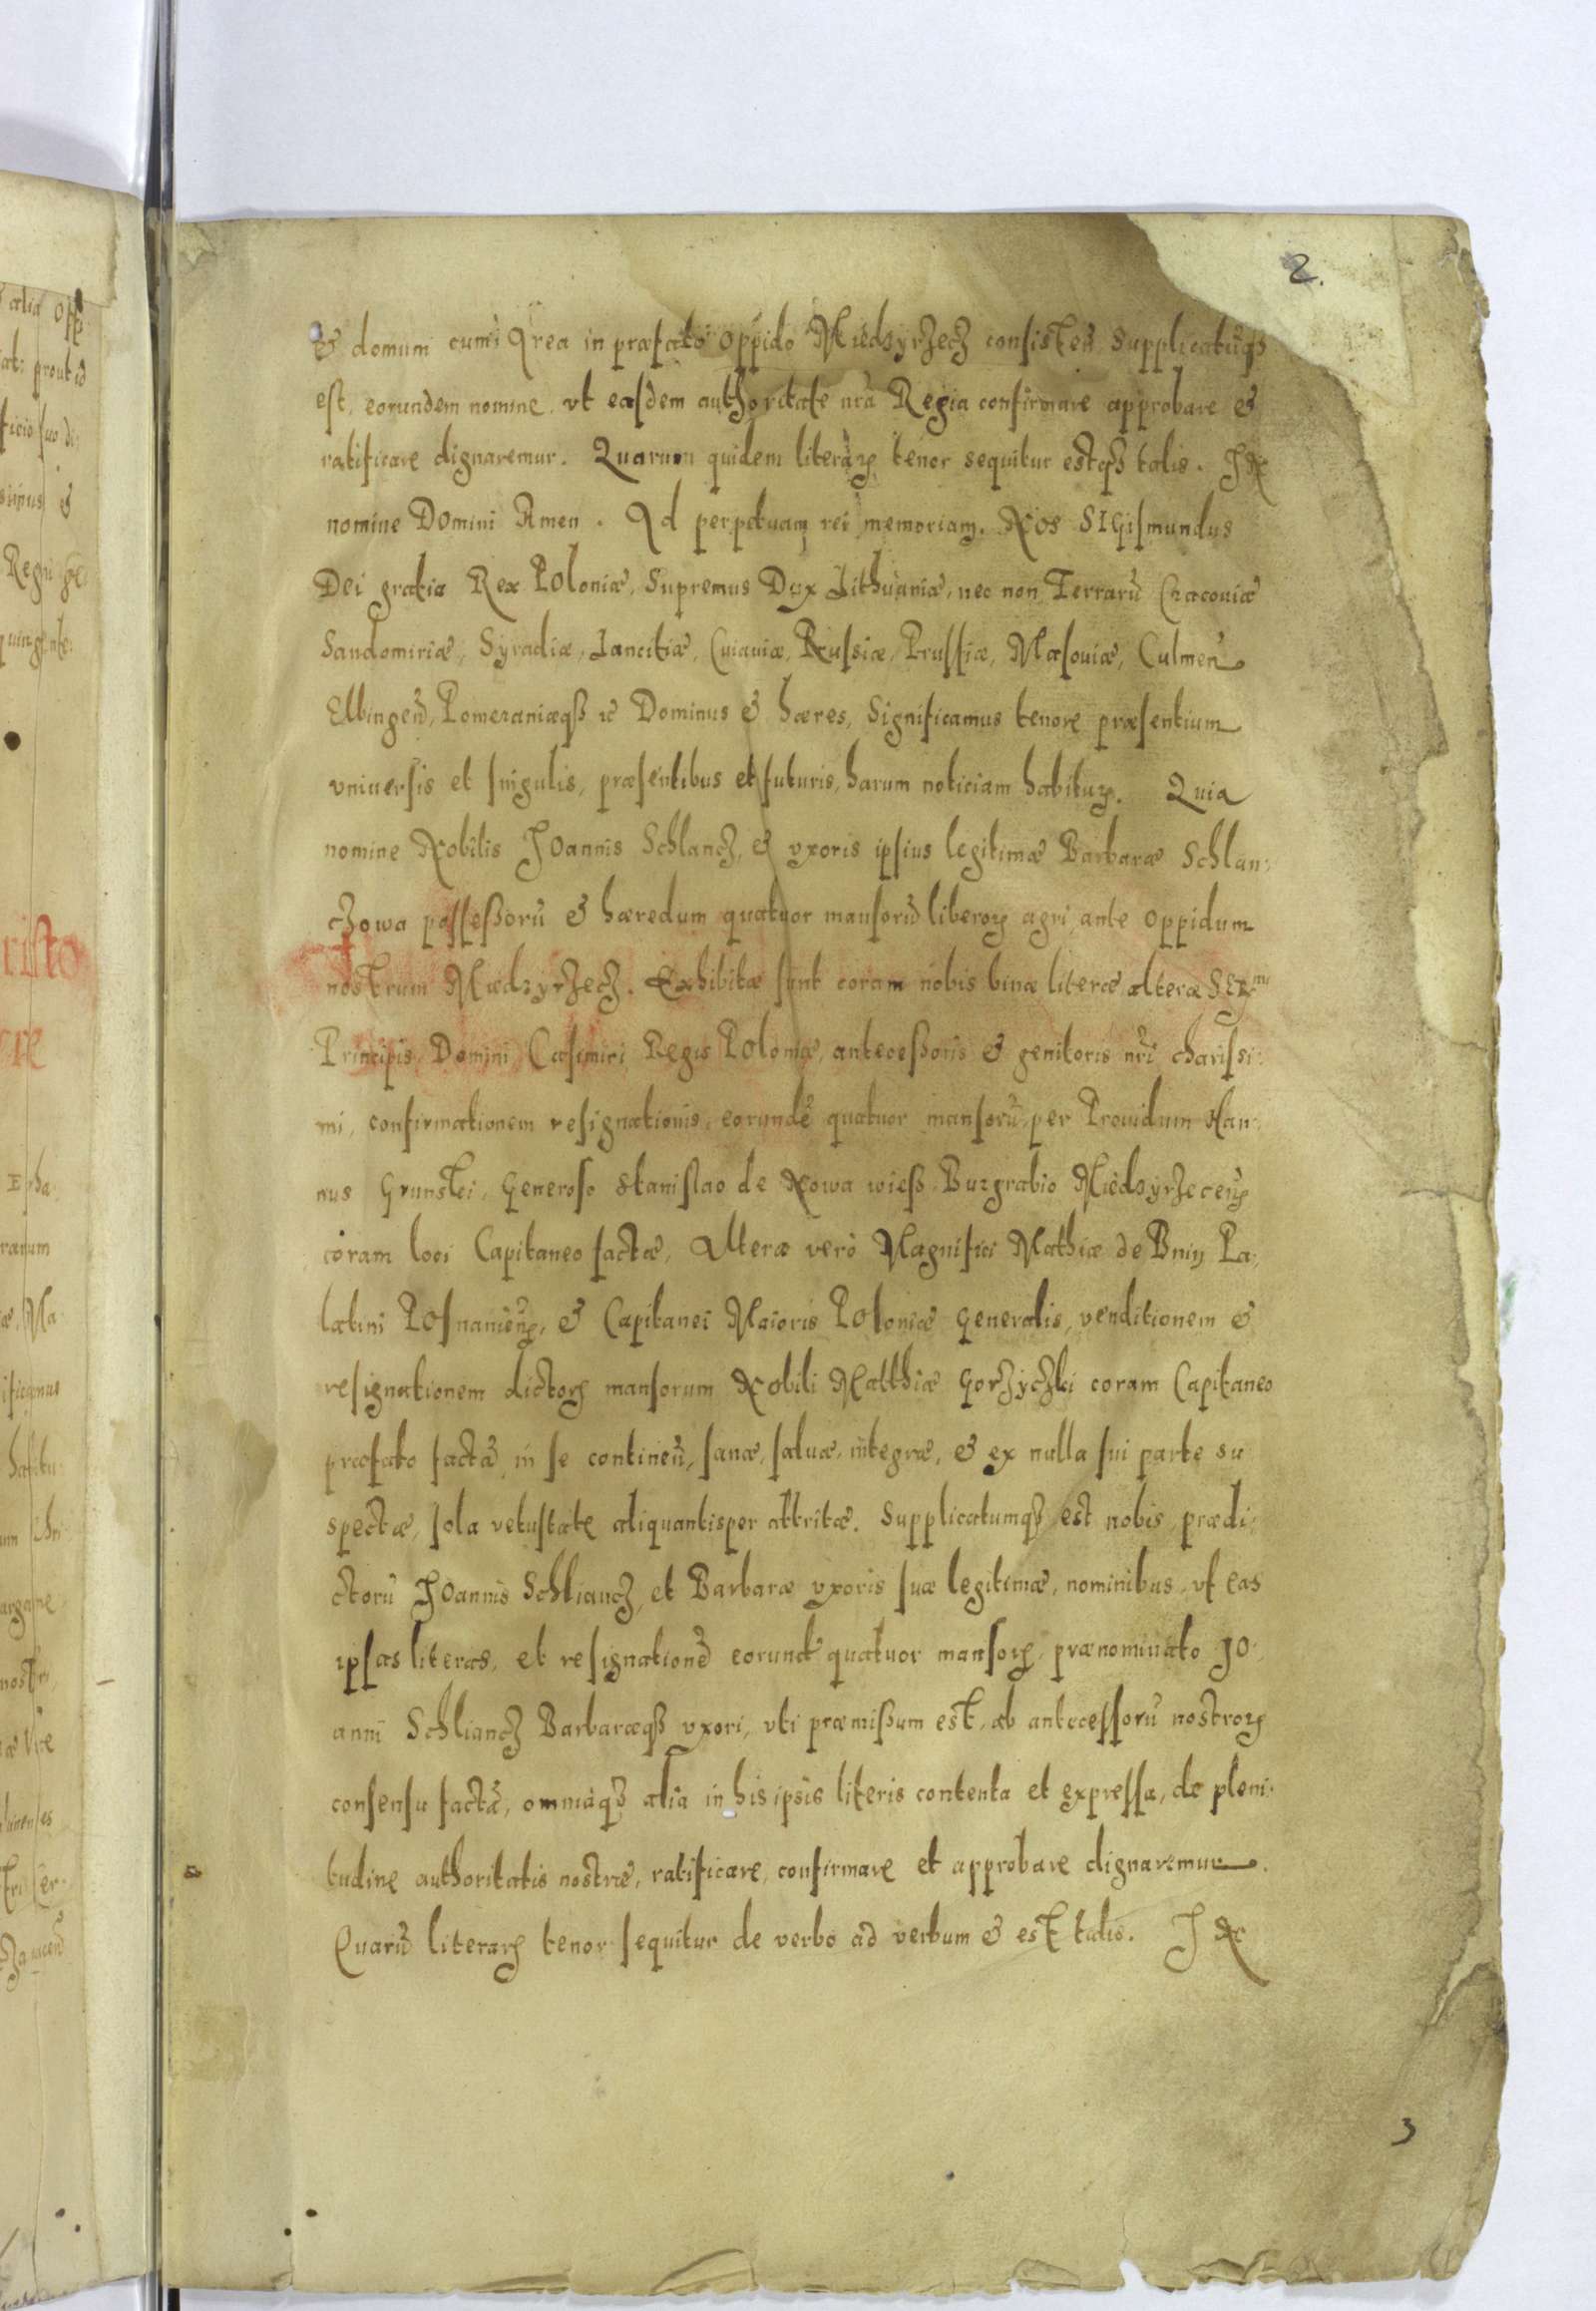 2.
& domum cum Area in præfato oppido Miedzyrzecz consisteñ Supplicatũqȝ
est, eorundem nomine, vt easdem authoritate nrã Regia confirmare approbare &
ratificare dignaremur. Quarum quidem literarꝝ tenor sequitur estqȝ talis. In
nomine Domini Amen. Ad perpetuam rei memoriam. Nos SIGismundus
Dei gratia Rex Poloniæ, Supremus Dux Lithuaniæ, nec non Terrarũ Cracouiæ
Sandomiriæ, Syradiæ, Lancitiæ, Cuiauiæ, Russiæ, Prussiæ, Masouiæ, Culmeñ
Elbingeñ, Pomeraniæqȝ &c Dominus & hæres, Significamus tenore præsentium
vniuersis et singulis, præsentibus et futuris, harum noticiam habiturꝝ. Quia
nomine Nobilis Joannis Schlancz, & vxoris ipsius legitimæ Barbaræ Schlan:
czowa possessorũ & hæredum quatuor mansorũ liberorꝝ agri ante oppidum
nostrum Miedzyrzecz. Exhibitæ sunt coram nobis binæ literæ alteræ Ser:mi
Principis Domini Casimiri Regis Poloniæ, antecessoris & genitoris nr̃i charissi:
mi, confirmationem resignationis, eorundẽ quatuor mansorũ per Prouidum Han:
nus Grunski, Generoso Stanislao de Nowa wiess Burgrabio Miedzyrzeceñ
coram loci Capitaneo factæ, Alteræ verò Magnifici Mathiæ de Bnin Pa:
latini Posnanieñ, & Capitanei Maioris Poloniæ Generalis, venditionem &
resignationem dictorꝝ mansorum Nobili Matthiæ Gorzyczki coram Capitaneo
præfato factã, in se contineñ, sanæ, saluæ, integræ, & ex nulla sui parte su
spectæ, sola vetustate aliquantisper attritæ. Supplicatumqȝ est nobis, prædi:
ctorũ Joannis Schliancz, et Barbaræ vxoris suæ legitimæ, nominibus, vt eas
ipsas literas, et resignationẽ eorundẽ quatuor mansorꝝ, prænominato Jo:
anni Schliancz Barbaræqȝ vxori, vti præmissum est, ab antecessorũ nostrorꝝ
consensu factã, omniaqȝ alia in his ipsis literis contenta et expressa, de pleni:
tudine authoritatis nostræ, ratificare, confirmare et approbare dignaremur.
Quarũ literarꝝ tenor sequitur de verbo ad verbum & est talis. In
3